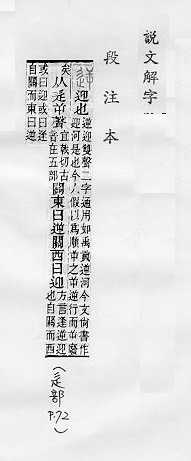 說文解字
段注本
逆迎也逆迎雙聲二字通用如禹貢逆河今文尙書作
迎河是也今人假以爲順屰之屰逆行而屰廢
矣从辵屰聲宜戟切古音在五部關東曰逆關西曰迎方言逢逆迎
也自關而西
或曰迎或曰逢
自關而東曰逆
(辵部
P.72)